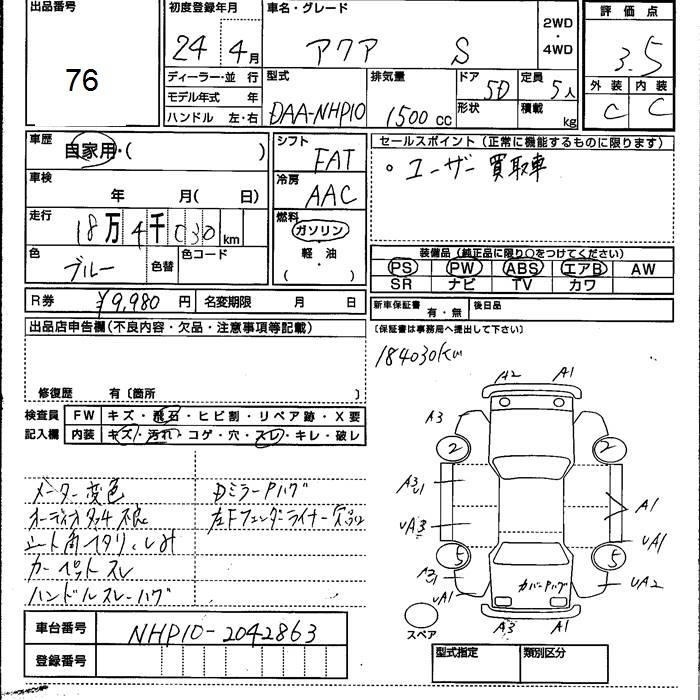 出品番号
76
初度登録年月
24 年 4 月
車名・グレード
アクア S
2WD
・
4WD
評価点
3.5
外装 内装
C C
ディーラー・並 行
モデル年式 年
ハンドル 左・右
型式
DAA-NHP10
排気量
1500 cc
ドア 5D
形状
定員 5人
積載 kg
車歴
自家用・( )
車検
年 月( 日)
走行
18万4千030km
色
ブルー
色替
色コード
シフト
FAT
冷房
AAC
燃料
ガソリン
軽・油
( )
セールスポイント(正常に機能するものに限ります)
。ユーザー買取車
装備品(純正品に限り○をつけてください)
PS PW ABS エアB AW
SR ナビ TV カワ
R券 ¥9,980 円
名変期限 月 日
新車保証書 有・無
後日品
(保証書は事務局へ提出して下さい)
出品店申告欄(不良内容・欠品・注意事項等記載)
修復歴 有〔箇所 〕
184030km
検査員
記入欄
FW キズ・飛石・ヒビ割・リペア跡・X要
内装 キズ・汚れ・コゲ・穴・スレ・キレ・破レ
メーター変色
オーディオタッチ不良
シート角ヘタリ、しみ
カーペットスレ
ハンドルスレ・ハゲ
DミラーPハゲ
左Fフェンダーライナー欠品
A2 A1
A3
2 2
A3
U1
UA3
A1
UA1
5 5
A2
U1
UA1
UA2
カバーPハゲ
A3 A1
スペア
車台番号 NHP10-2042863
登録番号
型式指定
類別区分